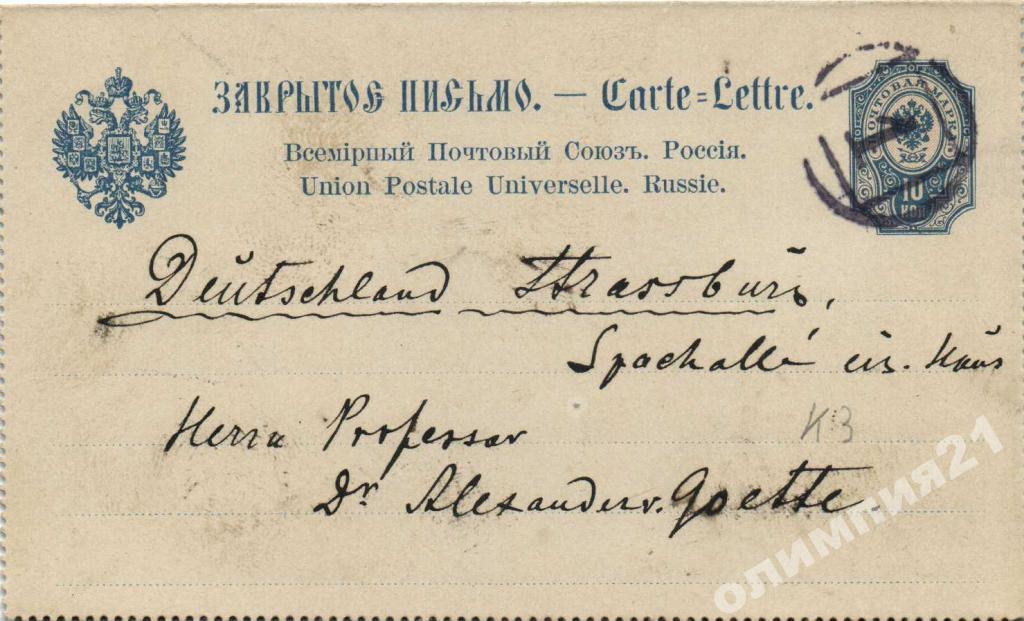 ЗАКРЫТОЕ ПИСЬМО. — Carte=Lettre.
Всемірный Почтовый Союзъ. Россія.
Union Postale Universelle. Russie.
ПОЧТОВАЯ МАРКА
10
КОП
Deutschland Strassburg,
Spachallé eig. Haus
Herrn Professor
K3
Dr Alexander v. Goette.
олимпия21